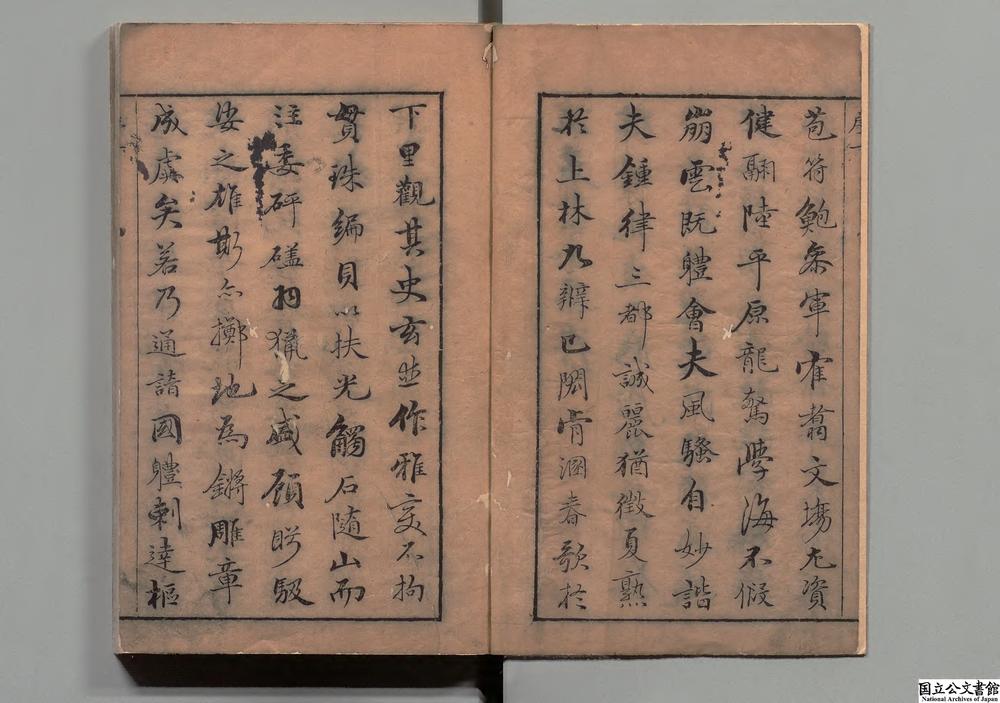 苞符鮑參軍隺翥文塲尤資
健翮陸平原龍驚學海不假
崩雲既軆會夫風騷自妙諧
夫鍾律三都誠麗猶徵夏熟
於上林九辯已闋骨溷春歌於
下里觀其史玄並作雅變不拘
貫珠編貝以扶光觸石隨山而
注委砰磕羽獵之盛頋眄馺
娑之雄斯亦擲地為鏘雕章
成虡矣若乃通諳國軆剌達樞
国立公文書館
National Archives of Japan